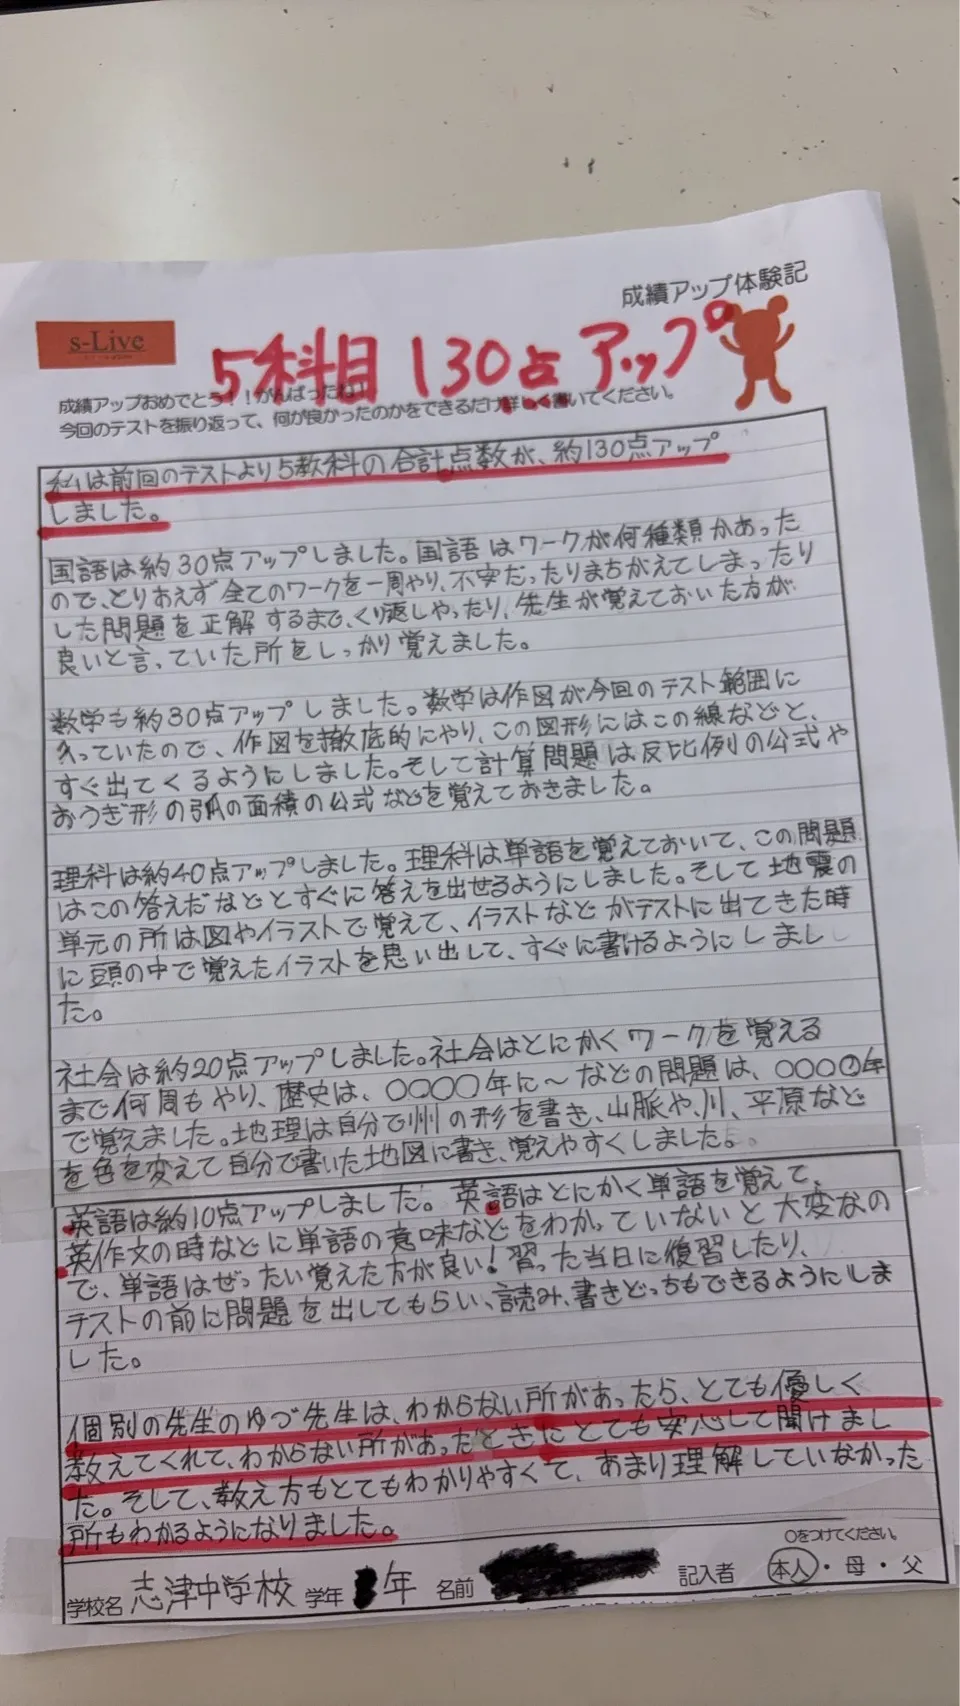 成績アップ体験記
s-Live
5科目 130点アップ
成績アップおめでとう！！がんばったね！
今回のテストを振り返って、何が良かったのかをできるだけ詳しく書いてください。
私は前回のテストより5教科の合計点数が、約130点アップ
しました。
国語は約30点アップしました。国語はワークが何種類かあった
ので、とりあえず全てのワークを一周やり、不安だったりまちがえてしまったり
した問題を正解するまで、くり返しやったり、先生が覚えておいた方が
良いと言っていた所をしっかり覚えました。
数学も約30点アップしました。数学は作図が今回のテスト範囲に
入っていたので、作図を徹底的にやり、この図形にはこの線などと、
すぐ出てくるようにしました。そして計算問題は反比例の公式や
おうぎ形の弧の面積の公式などを覚えておきました。
理科は約40点アップしました。理科は単語を覚えておいて、この問題
はこの答えだなどとすぐに答えを出せるようにしました。そして地震の
単元の所は図やイラストで覚えて、イラストなどがテストに出てきた時
に頭の中で覚えたイラストを思い出して、すぐに書けるようにしまし
た。
社会は約20点アップしました。社会はとにかくワークを覚える
まで何周もやり、歴史は、○○○○年に～などの問題は、○○○○年
で覚えました。地理は自分で州の形を書き、山脈や、川、平原など
を色を変えて自分で書いた地図に書き、覚えやすくしました。
英語は約10点アップしました。英語はとにかく単語を覚えて、
英作文の時などに単語の意味などをわかっていないと大変なの
で、単語はぜったい覚えた方が良い！習った当日に復習したり、
テストの前に問題を出してもらい、読み、書きどっちもできるようにしま
した。
個別の先生のゆづ先生は、わからない所があったら、とても優しく
教えてくれて、わからない所があったときにとても安心して聞けまし
た。そして、教え方もとてもわかりやすくて、あまり理解していなかった
所もわかるようになりました。
○をつけてください。
学校名 志津中学校 学年 年 名前 記入者 本人・母・父